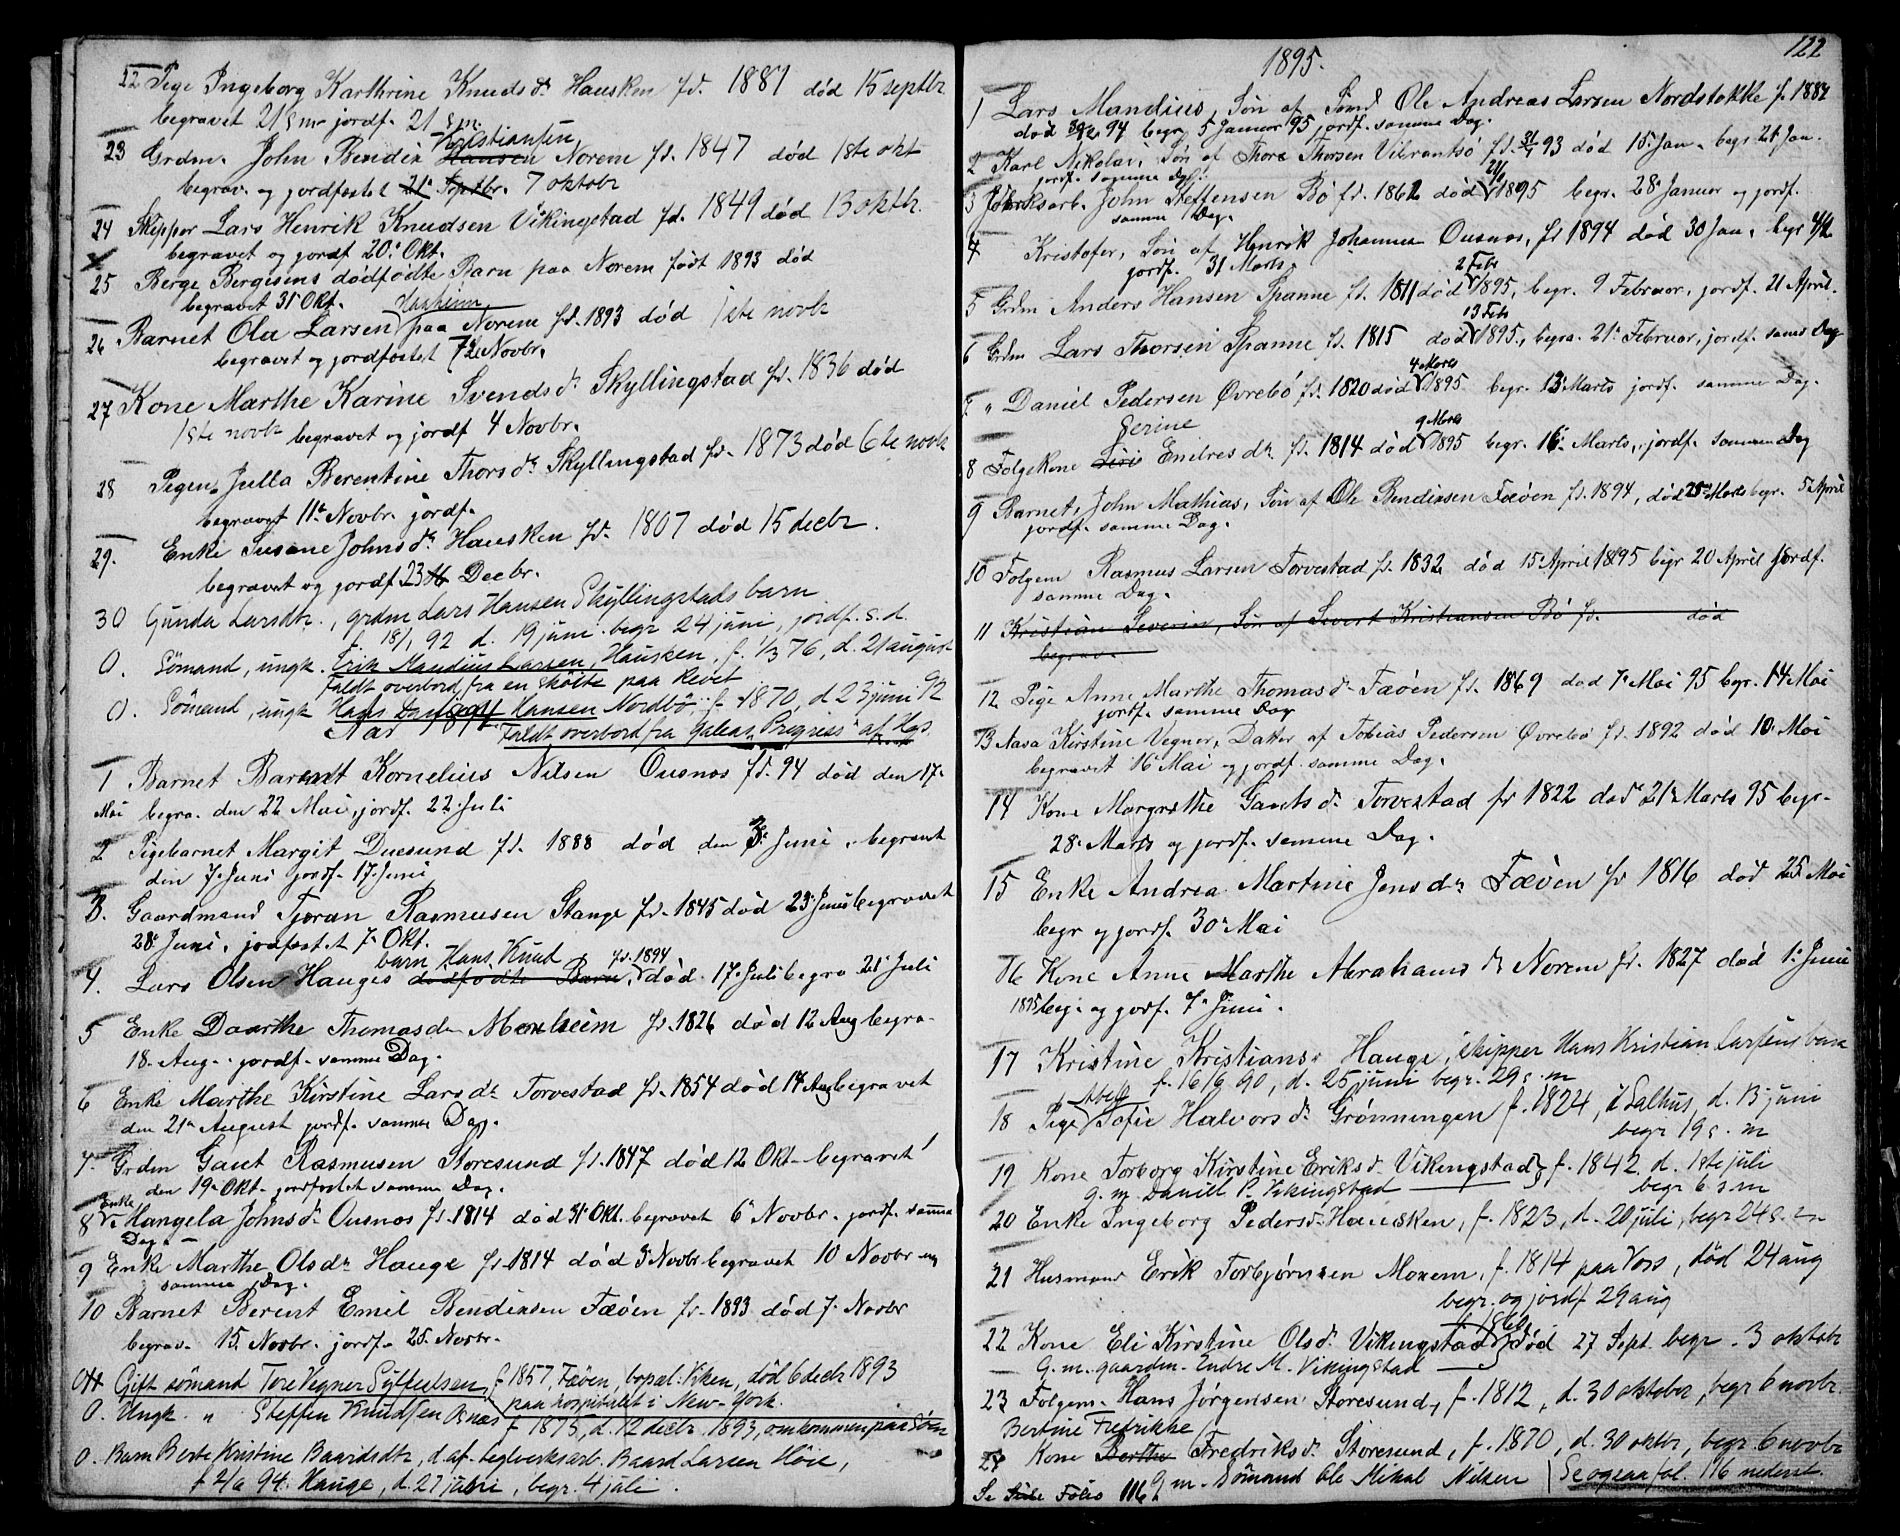 22 Pige Ingeborg Karthrine Knuds dr Hausken fd. 1881 død 15 septbr
begravet 21 s m jordf. 21 s.m.
Kristiansen
23 Grdm. John Bendix Hansen Norem fd. 1847 død 1ste okt
begrav. og jordfæstet 21 Septbr. 7 oktobr
24 Skipper Lars Henrik Knudsen Vikingstad fd. 1849 død 13 oktbr.
begravet og jordf 20. Okt.
25 Berge Bergesens dødfødte Barn paa Norem født 1893 død
begravet 31 Okt.
26 Barnet Ola Larsen paa Norem fd. 1893 død 1ste novbr
begravet og jordfæstet 7de Novbr.
27 Kone Marthe Karine Svends dr Skyllingstad fd. 1836 død
1ste novbr begravet og jordf 4 Novbr.
28 Pigen Julla Berentine Thors dr Skyllingstad fd. 1873 død 6te novbr
begravet 11te Novbr. jordf.
29. Enke Susane Johns dr Hausken fd. 1807 død 15 decbr.
begravet og jordf 23 Decbr.
30 Gunda Larsdtr., grdm Lars Hansen Skyllingstads barn
f. 18/1 92 d. 19 juni. begr 24 juni, jordf. s. d.
0. Sömand, ungk. Erik Mandius Larsen, Hausken, f. 1/3 76, d. 21 august
Faldt overbord fra en sköite paa Revet
0. Sömand, ungk Hans Hansen Nordbö, f. 1870, d 23 juni 92
Faldt overbord fra galeas "Progress" af Hgs.
Aar 1894
1 Barnet Barent Kornelius Nilsen Ousnes fd. 94 død den 17.
Mai begra. den 22 Mai, jordf. 22 Juli
2 Pigebarnet Margit Duesund fd. 1888 død den 3. Juni, begravet
den 7. Juni jordf. 17. Juni
3. Gaardmand Tjøran Rasmusen Stange fd. 1845 død 23 Juni begravet
28. Juni. jordfæstet 7. Okt.
barn Hans Knud fd. 1894
4. Lars Olsen Hauges dødfødte Barn, død. 17. Juli begra 21 Juli
5 Enke Daarthe Thomasdr Monheim fd. 1826 død 12 Aug begra.
18. Aug. jordf. samme Dag.
6 Enke Marthe Kirstine Lars dr Torvestad fd. 1854 død 14 Aug begravet
den 21 August jordf. samme Dag.
7. Grdm Gaut Rasmusen Storesund fd. 1847 død 12 Okt. begravet
den 19. Okt. jordfæstet samme Dag.
Enke
8 Mangela Johns dr Ousnes fd. 1814 død 31 Okt. begravet 6 Novbr. jordf. samme
Dag.
9 Enke Marthe Olsdr Hauge fd. 1814 død 3 Novbr begravet 10 Novbr
samme Dag.
10 Barnet Berent Emil Bendixsen Fæøen fd. 1893 død 7. Novbr
begrav. 15. Novbr. jordf. 25. Novbr.
Gift sömand Tore Vegner Syltedsen, f. 1857, Fæøen, bopæl: Viken, död 6 decbr 1893
paa hospitalet i New-York.
0. Ungk. " Steffen Knudsen Osnes f. 1875, d. 12 decbr 1893, omkommen paa Søen
0. Barn Berte Kristine Baardsdtr, d. af teglverksarb. Baard Larsen Höie,
f 2/6 94. Hauge, d. 27 juni, begr. 4 juli.
122
1895.
1 Lars Mandius, Søn af Smed Ole Andreas Larsen Nordstokke f. 1884
død 94 begr, 5 Januar 95 jordf. samme Dag.
2 Karl Nikolai, Søn af Thore Thorsen Vibrantsø fd. 93 død 15 Jan. begr 21 Jan.
jordf. samme Dag.
3 John Steffensen Bø fd. 1862 død 1895 begr. 28 Januar og jordf.
samme Dag.
4 Kristofer, Søn af Henrik Johannes Ousnes, fd 1894 død 30 Jan. begr
jordf. 31 Marts.
2 Febr
5 Grdm Anders Hansen Spanne fd. 1811 død 1895, begr. 9 Februar, jordf. 21 April.
13 Febr
6 Grdm Lars Thorsen Spanne fd. 1815 død 1895, begra. 21 Februar, jordf. samme Dag
4 Marts
7. " Daniel Pedersen Øvrebø fd. 1820 død 1895 begr. 13 Marts jordf. samme Dag.
Gerine 9 Marts
8 Folgekone Siri Endres dr. fd. 1814 død 1895 begr. 16. Marts, jordf. samme Dag
9 Barnet, John Mathias, Søn af Ole Bendixsen Fæøen fd. 1894, død 25 Marts begr. 5 April
jordf. samme Dag.
10 Folgem Rasmus Larsen Torvestad fd. 1832 død 15 April 1895 begr 20 April jordf.
samme Dag.
11 Kristian Severin, Søn af Sivert Kristiansen Bø fd. død
begrav.
12 Pige Anne Marthe Thomas dr Fæøen fd. 1869 død 7 Mai 95 begr. 14 Mai
jordf. samme Dag
13 Nasa Kirstine Vegner, Datter af Tobias Pedersen Øvrebø fd. 1892 død 10. Mai
begravet 16 Mai og jordf. samme Dag.
14 Kone Margrethe Gauts dr Torvestad fd 1822 død 21 Marts 95 begr.
28. Marts og jordf. samme Dag.
15 Enke Andrea Martine Jens dr Fæøen fd 1816 død 25. Mai
begr og jordf. 30 Mai
16 Kone Anne Marthe Abrahams dr Norem fd. 1827 død 1. Juni
1895 begr. og jordf. 7. Juni.
17 Kristine Kristiansdr Hauge, skipper Hans Kristian Larsens barn
f. 16/9 90, d. 25 juni begr. 29 s. m
Abell
18 Pige Sofie Halvors dr Grönningen f. 1824, i Salhus, d. 13 juni
begr 19 s. m
19 Kone Torborg Kirstine Eriks dr Vikingstad, f. 1842, d. 1ste juli
g. m. Daniel P. Vikingstad begr 6 s m
20 Enke Ingeborg Pedersdr Hausken, f. 1823, d. 20 juli, begr 24 s. m
21 Husmand Erik Torbjørnsen Monem, f. 1814 paa Voss, död 24 aug
begr. og jordf 29 aug
22 Kone Eli Kirstine Ols dr Vikingstad, död 27 Sept. begr. 3 oktobr
g. m. gaardm. Endre M. Vikingstad
23 Folgem. Hans Jörgensen Storesund, f. 1812, d. 30 oktober, begr 6 novbr.
Bertine Fredrikke
24 Kone Berthe Fredriks dr Storesund, f. 1870, d. 30 oktbr, begr 6 novbr
g. m. Sömand Ole Mikal Nilsen | Se ogsaa fol. 116 nederst.
Se Side Folio 116